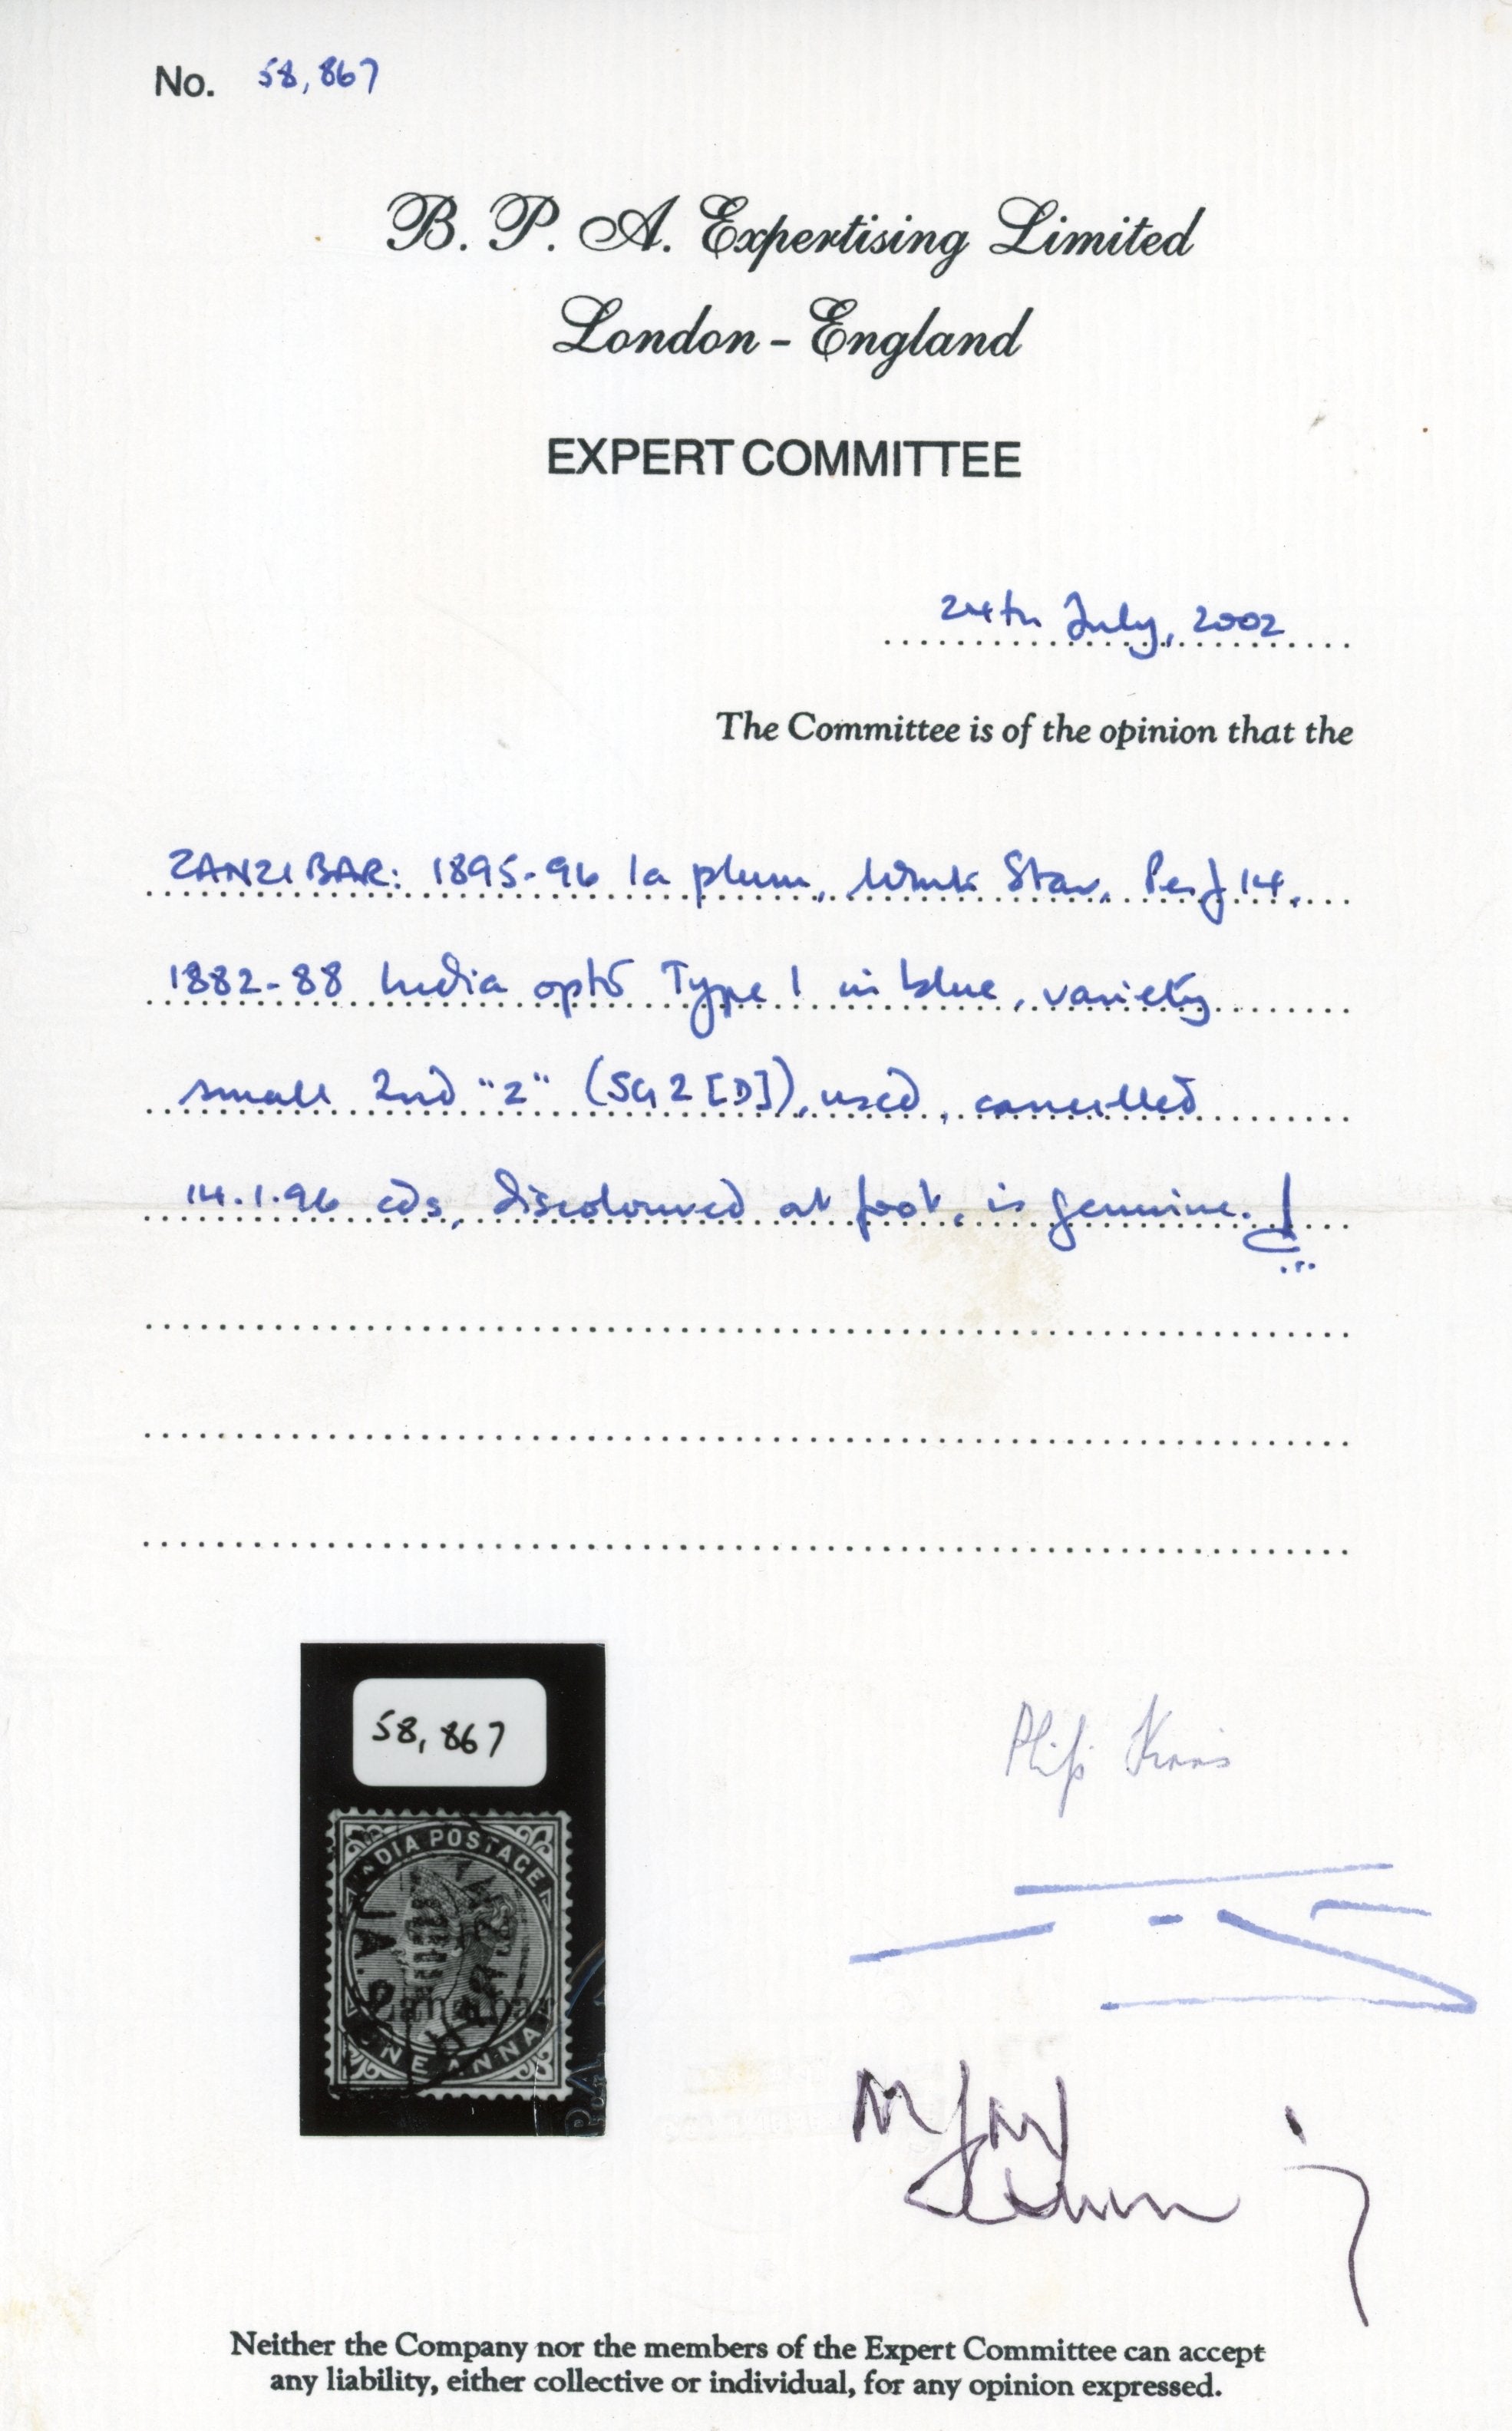 No. 58,867
B. P. A. Expertising Limited
London - England
EXPERT COMMITTEE
24th July, 2002
The Committee is of the opinion that the
ZANZIBAR: 1895-96 1a plum, Wmk Star, Perf 14,
1882-88 India optd Type 1 in blue, variety
small 2nd "z" (SG 2 [D]), used, cancelled
14.1.96 cds, discoloured at foot, is genuine.
58,867
INDIA POSTAGE
JA
Zanzibar
ONE ANNA
Neither the Company nor the members of the Expert Committee can accept
any liability, either collective or individual, for any opinion expressed.